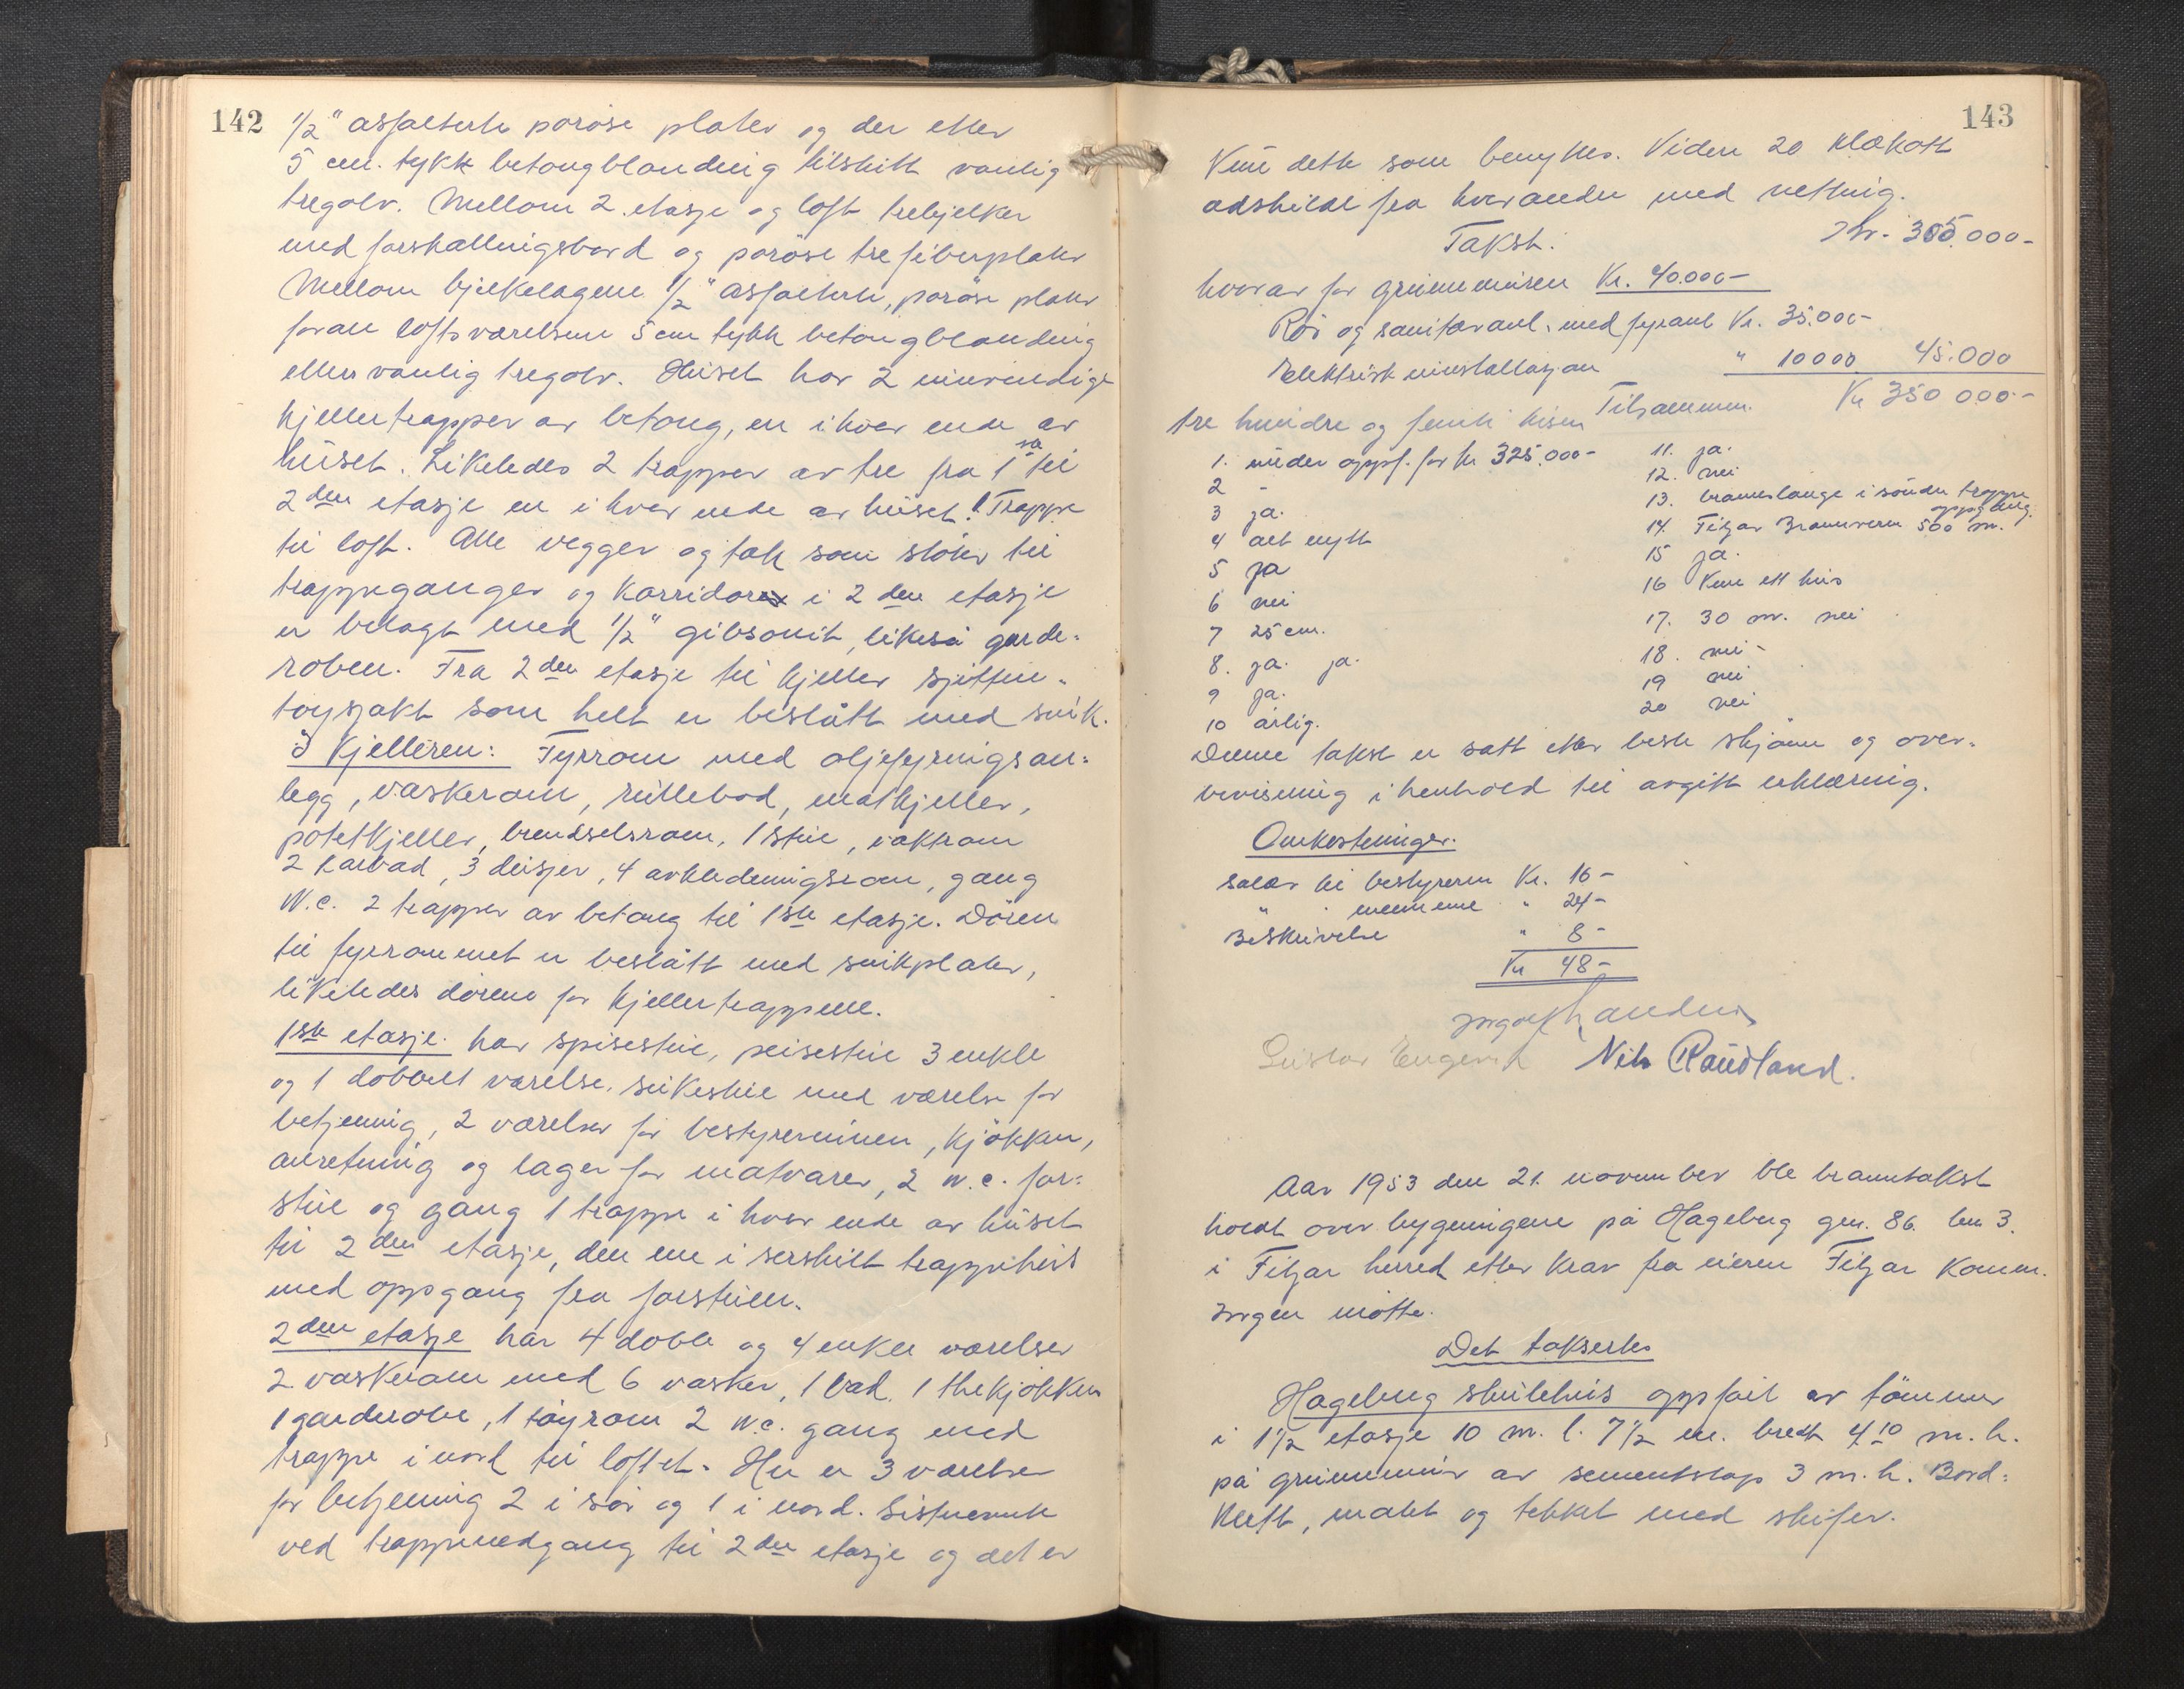 142
1/2" asfalterte porøse plater og der etter
5 cm. tykk betongblanding tilslutt vanlig
tregolv. Mellom 2. etasje og loft trebjelker
med forskallingsbord og porøse trefiberplater
Mellom bjelkelagene 1/2" asfalterte, porøse plater
foran loftsværelsene 5 cm tykk betongblanding
ellers vanlig tregolv. Huset har 2 innvendige
kjellertrapper av betong, en i hver ende av
huset. Likeledes 2 trapper av tre fra 1ste til
2den etasje en i hver ende av huset. 1 Trappe
til loft. Alle vegger og tak som støter til
trappeganger og korridorer i 2den etasje
er belagt med 1/2" gibsonit, likeså garde-
roben. Fra 2den etasje til kjeller sjitten-
tøysjakt som helt er beslått med sink.
I Kjelleren: Fyrrom med oljefyringsan-
legg, vaskerom, rullebod, matkjeller,
potetkjeller, brendselsrom, 1 stue, vaktrom
2 karbad, 3 dusjer, 4 avkledningsrom, gang
W.C. 2 trapper av betong til 1ste etasje. Døren
til fyrrommet er beslått med sinkplater,
likeledes dørene for kjellertrappene.
1ste etasje. har spisestue, peisestue 3 enkle
og 1 dobbelt værelse, sukestue med værelse for
betjening, 2 værelser for bestyrerinnen, kjøkken,
anretning og lager for matvarer, 2 w.c. for-
stue og gang 1 trappe i hver ende av huset
til 2den etasje, den ene i serskilt trappehus
med oppgang fra forstuen.
2den etasje har 4 doble og 4 enkle værelser
2 vaskerom med 6 vasker, 1 bad, 1 thekjøkken
1 garderobe, 1 tøyrom 2 w.c. gang med
trappe i nord til loftet. Her er 3 værelser
for betjening 2 i sør og 1 i nord. Sistnevnte
ved trappenedgang til 2den etasje og det er
143
kun dette som benyttes. Videre 20 klækott
adskildt fra hverandre med netting.
Takst. Kr. 305.000-
hvorav for grunnmuren Kr. 40.000-
Rør og sanitæranl. med fyranl Kr. 35.000-
Elektrisk innstallasjon " 10000 45.000
tre hundre og femti tusen Tilsammen. Kr 350 000-
1. under oppf. for kr 325.000-
2 -
3 ja.
4 alt nytt
5 ja
6 nei
7 25 cm.
8. ja. ja.
9 ja.
10 årlig.
11. ja.
12. nei
13. brannslange i søndre trappe
oppgang.
14. Fitjar Brannvern 500 m.
15 ja.
16 Kun ett hus
17. 30 m. nei
18. nei-
19 nei
20 nei
Denne takst er satt etter beste skjønn og over-
bevisning i henhold til avgitt erklæring.
Omkostninger.
Salær til bestyreren Kr. 16-
" " mennene " 24-
Beskrivelse " 8-
Kr 48-
Nils Raudland.
Aar 1953 den 21. november ble branntakst
holdt over bygningene på Hageberg gnr. 86. bnr 3.
i Fitjar herred etter krav fra eieren Fitjar Komm.
Ingen møtte.
Det taksertes
Hageberg skulehus oppført av tømmer
i 1 1/2 etasje 10 m. l. 7 1/2 m. bredt 4,10 m. h.
på grunnmur av sementstøp 3 m. h. Bord-
kledt, malt og tekket med skifer.